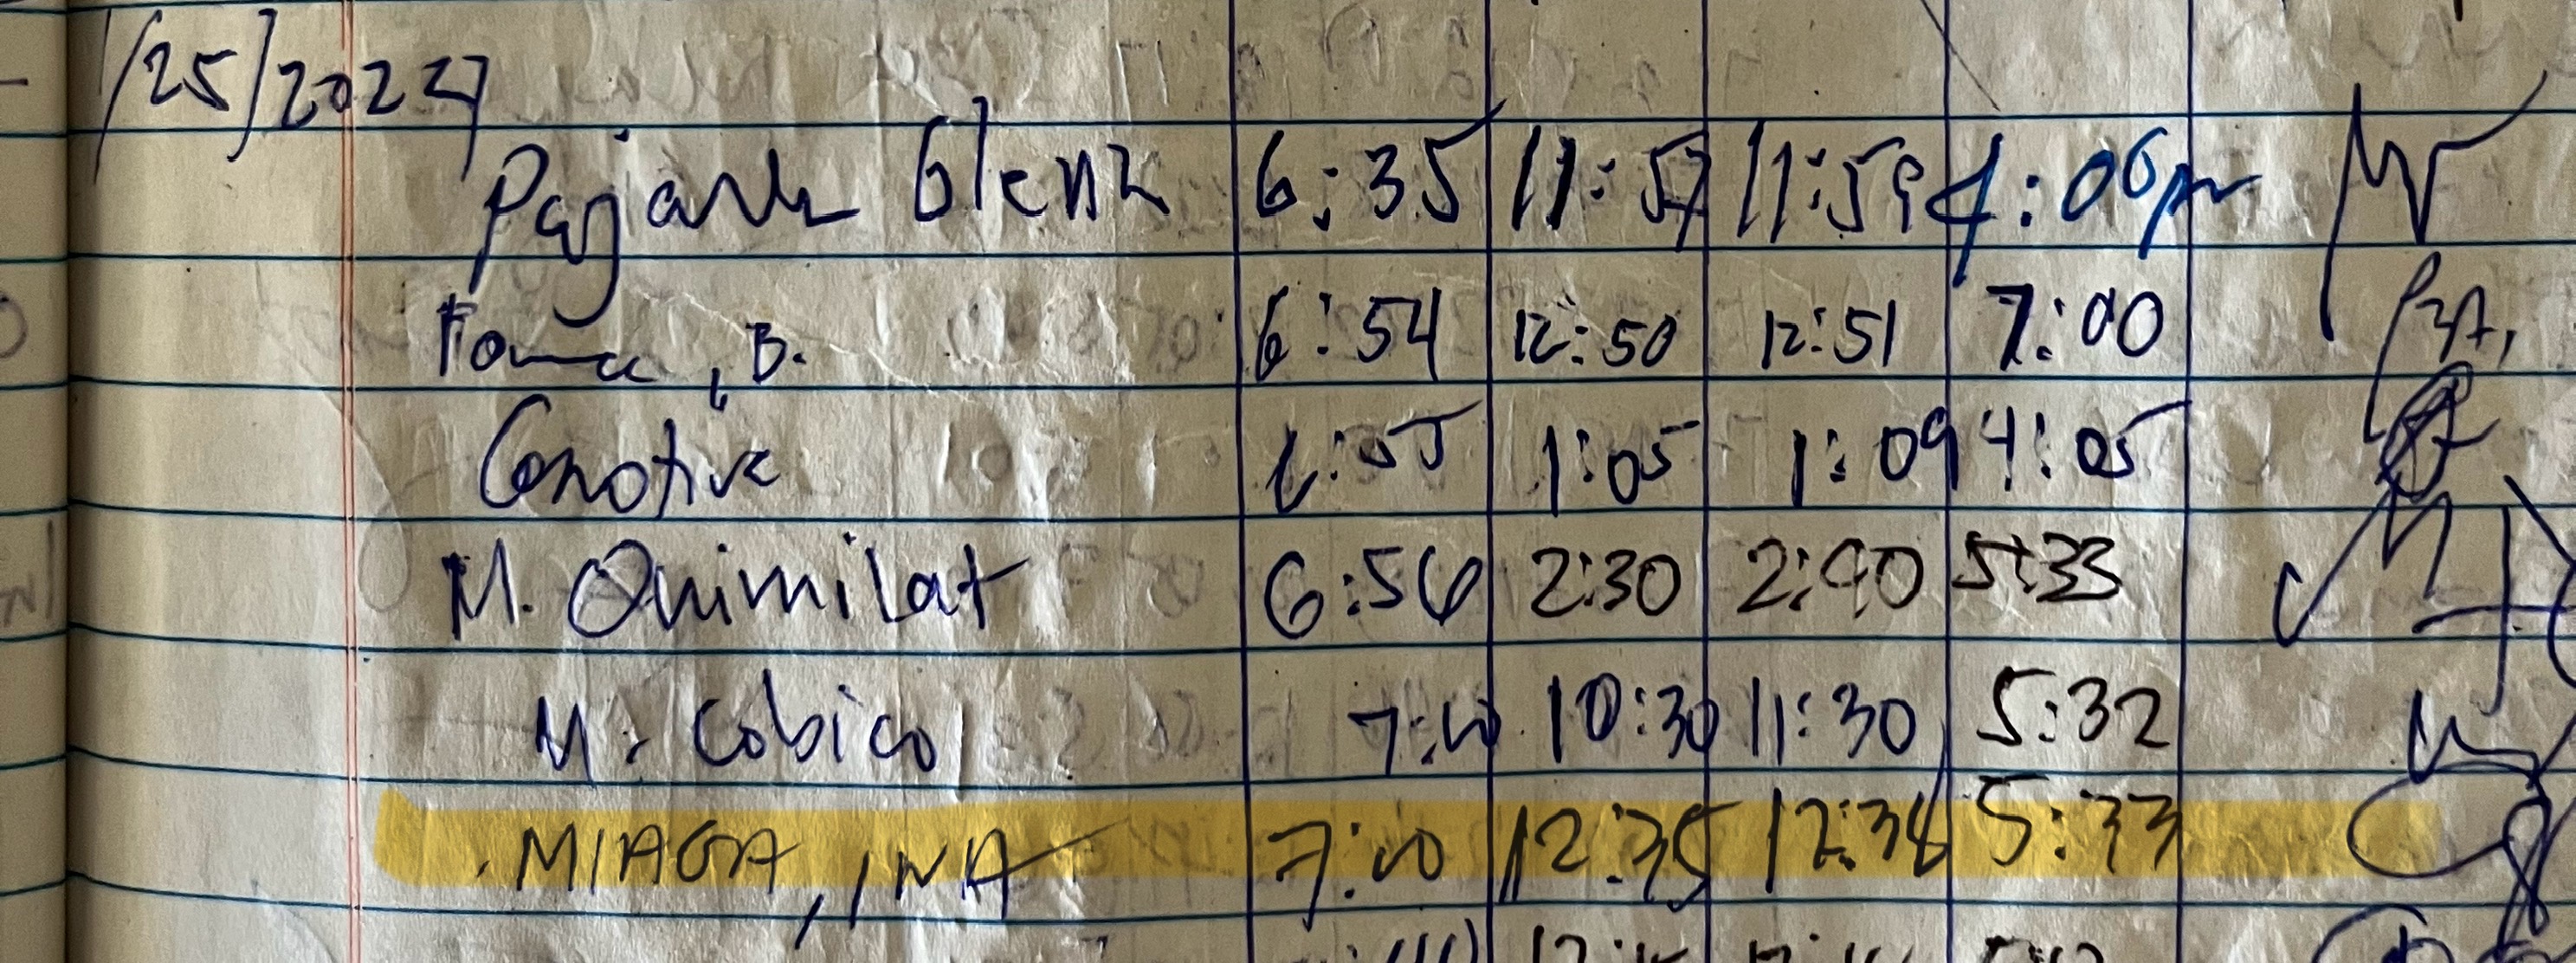 /25/2022
Glenn 6:35 11:57 11:59 4:06pm
, B. 6:54 12:50 12:51 7:00
6:55 1:05 1:09 4:05
M. Quimilat 6:56 2:30 2:40 5:33
M. Cobico 7:00 10:30 11:30 5:32
MIAGA, INA 7:00 12:35 12:38 5:33